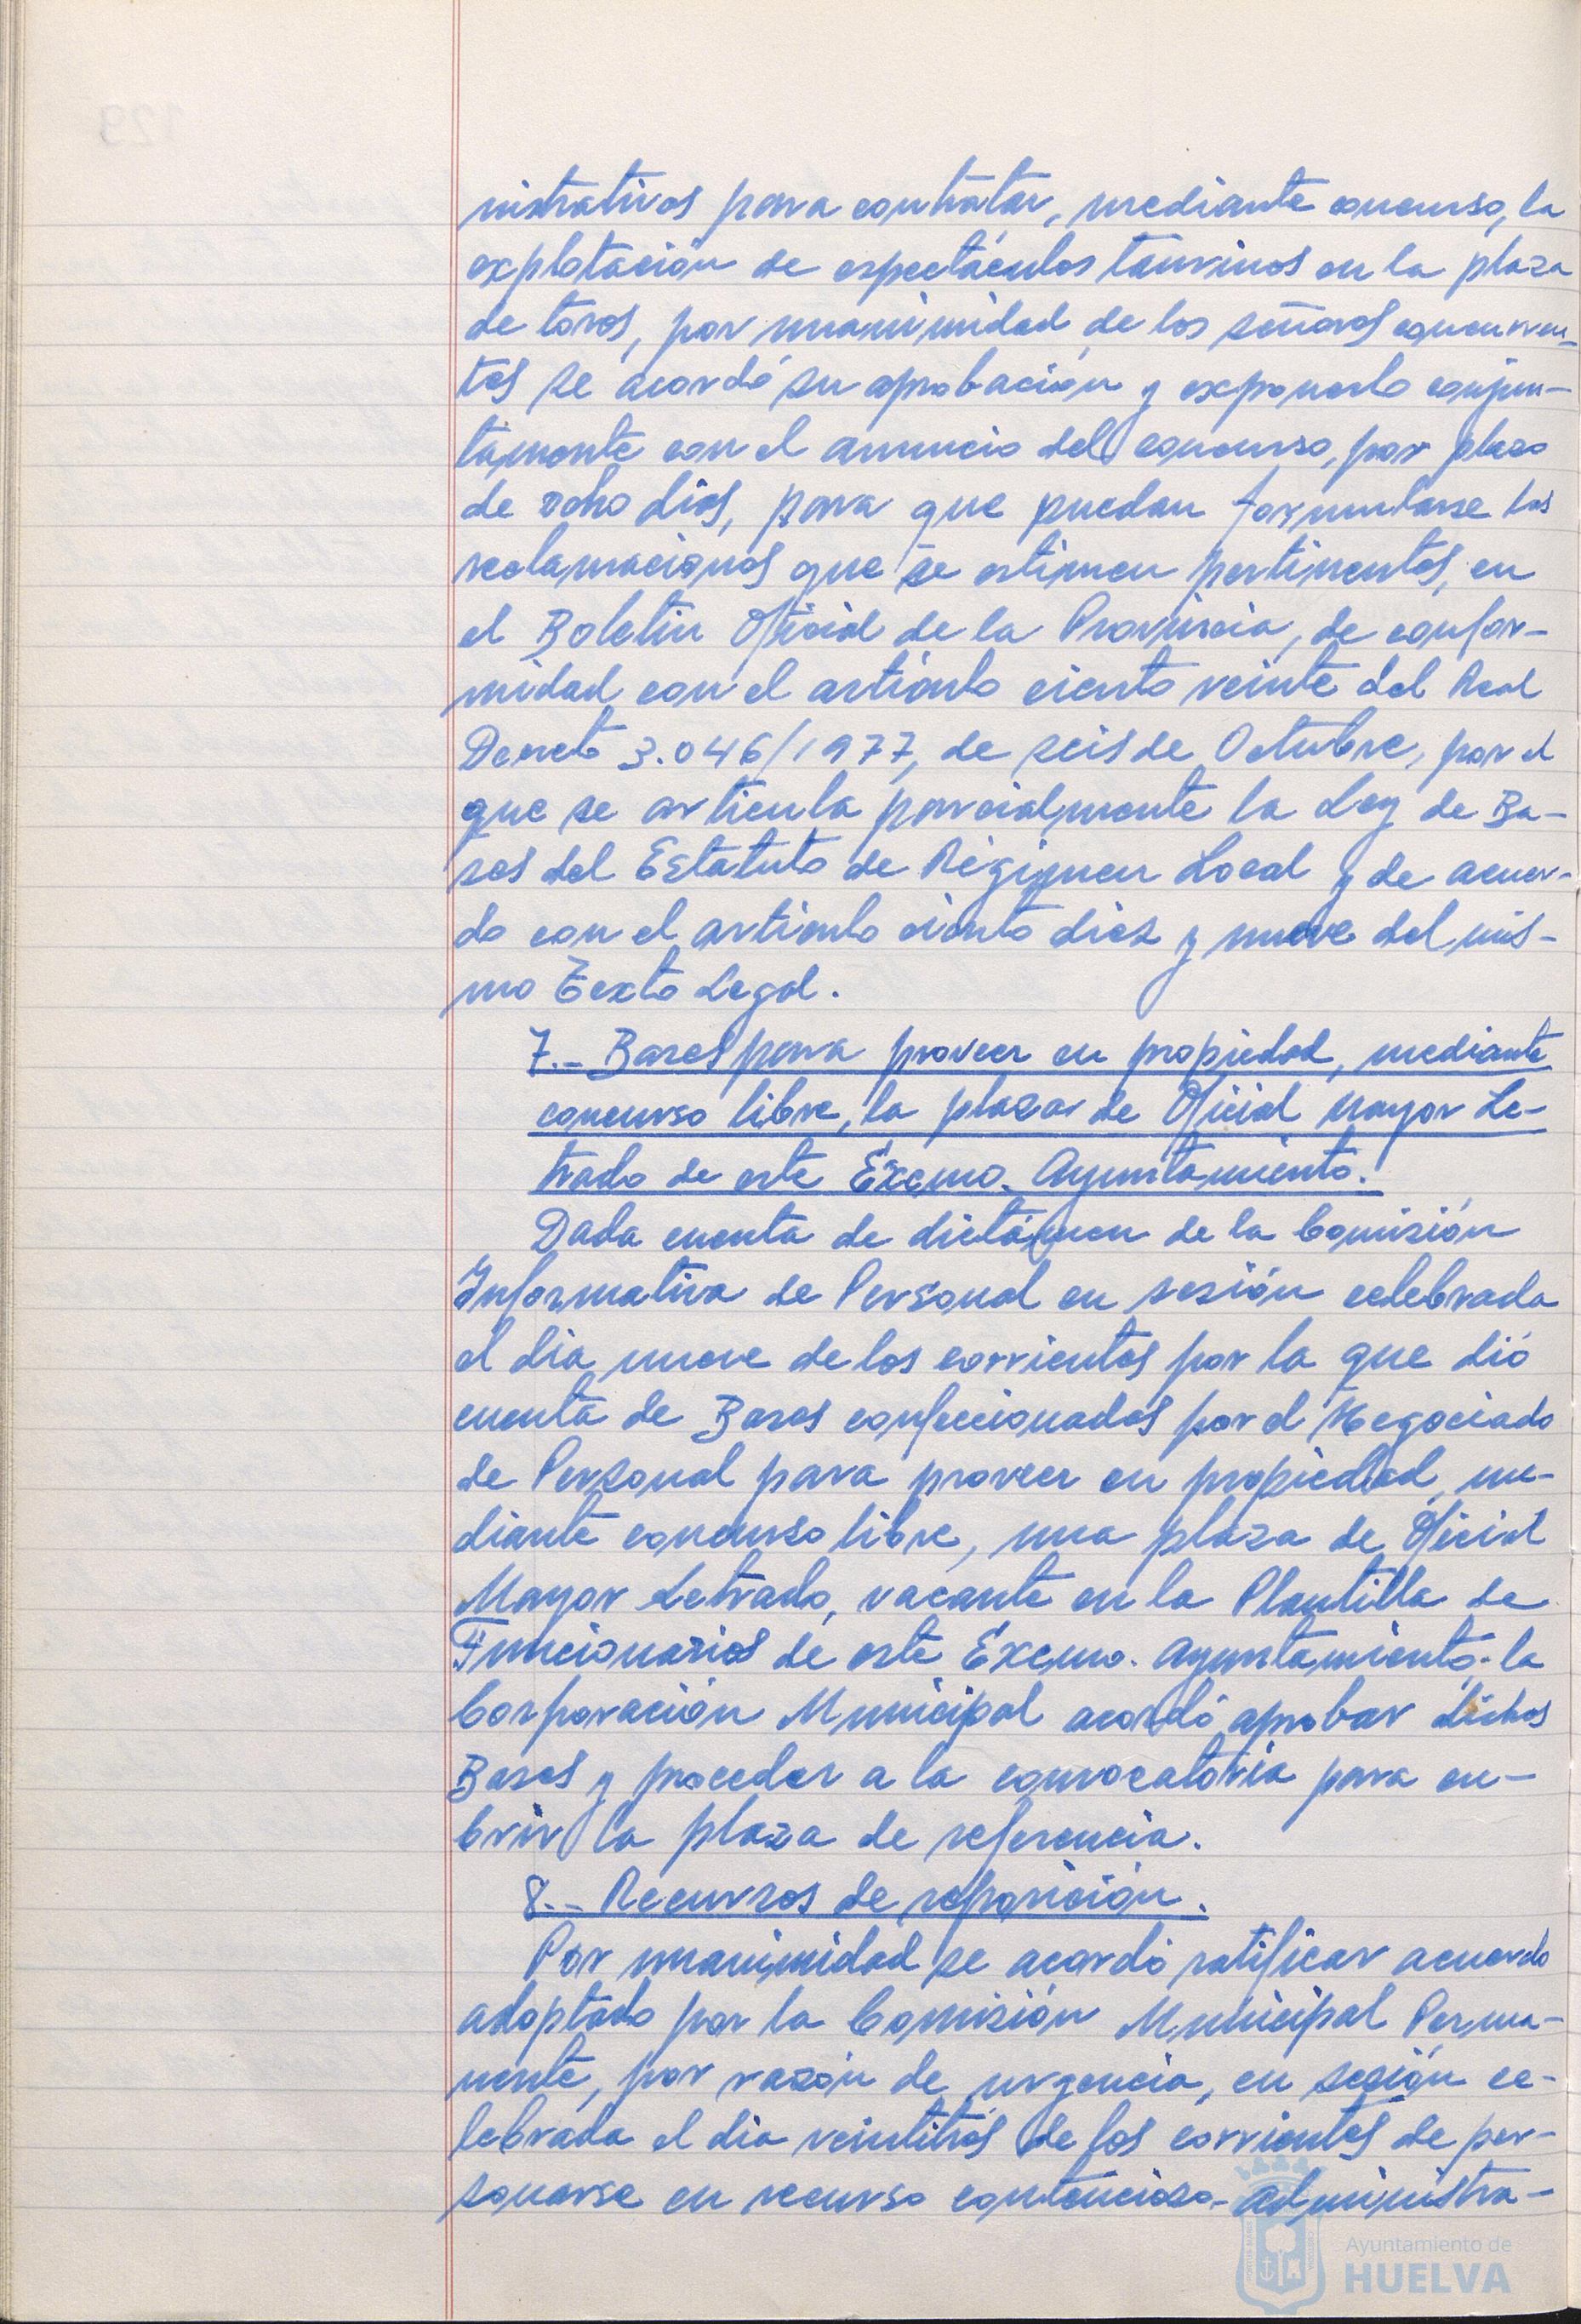 nistrativos para contratar, mediante concurso, la
explotación de espectáculos taurinos en la plaza
de toros, por unanimidad de los señores concurren-
tes se acordó su aprobación y exponerlo conjun-
tamente con el anuncio del concurso, por plazo
de ocho dias, para que puedan formularse las
reclamaciones que se estimen pertinentes, en
el Boletin Oficial de la Provincia, de confor-
midad con el articulo ciento veinte del Real
Decreto 3.046/1977, de seis de Octubre, por el
que se articula parcialmente la Ley de Ba-
ses del Estatuto de Régimen Local y de acuer-
do con el articulo ciento diez y nueve del mis-
mo Texto Legal.
7.- Bases para proveer en propiedad, mediante
concurso libre, la plaza de Oficial Mayor Le-
trado de este Excmo. Ayuntamiento.
Dada cuenta de dictámen de la Comisión
Informativa de Personal en sesión celebrada
el dia nueve de los corrientes por la que dió
cuenta de Bases confeccionadas por el Negociado
de Personal para proveer en propiedad, me-
diante concurso libre, una plaza de Oficial
Mayor Letrado, vacante en la Plantilla de
Funcionarios de este Excmo. Ayuntamiento, la
Corporación Municipal acordó aprobar dichas
Bases y proceder a la convocatoria para cu-
brir la plaza de referencia.
8.- Recursos de reposición.
Por unanimidad se acordó ratificar acuerdo
adoptado por la Comisión Municipal Perma-
nente, por razón de urgencia, en sesión ce-
lebrada el dia veintitrés de los corrientes de per-
sonarse en recurso contencioso-administra-
Ayuntamiento de
HUELVA